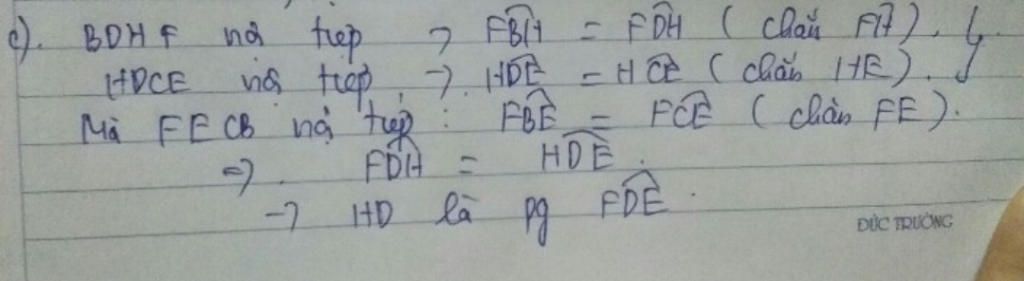 c). BDHF nội tiếp → FBH = FDH ( chắn FH ).
HDCE nội tiếp. → HDE = HCE ( chắn HE ).
Mà FECB nội tiếp : FBE = FCE ( chắn FE ).
=> FDH = HDE.
→ HD là pg FDE.
ĐỨC TRƯỜNG